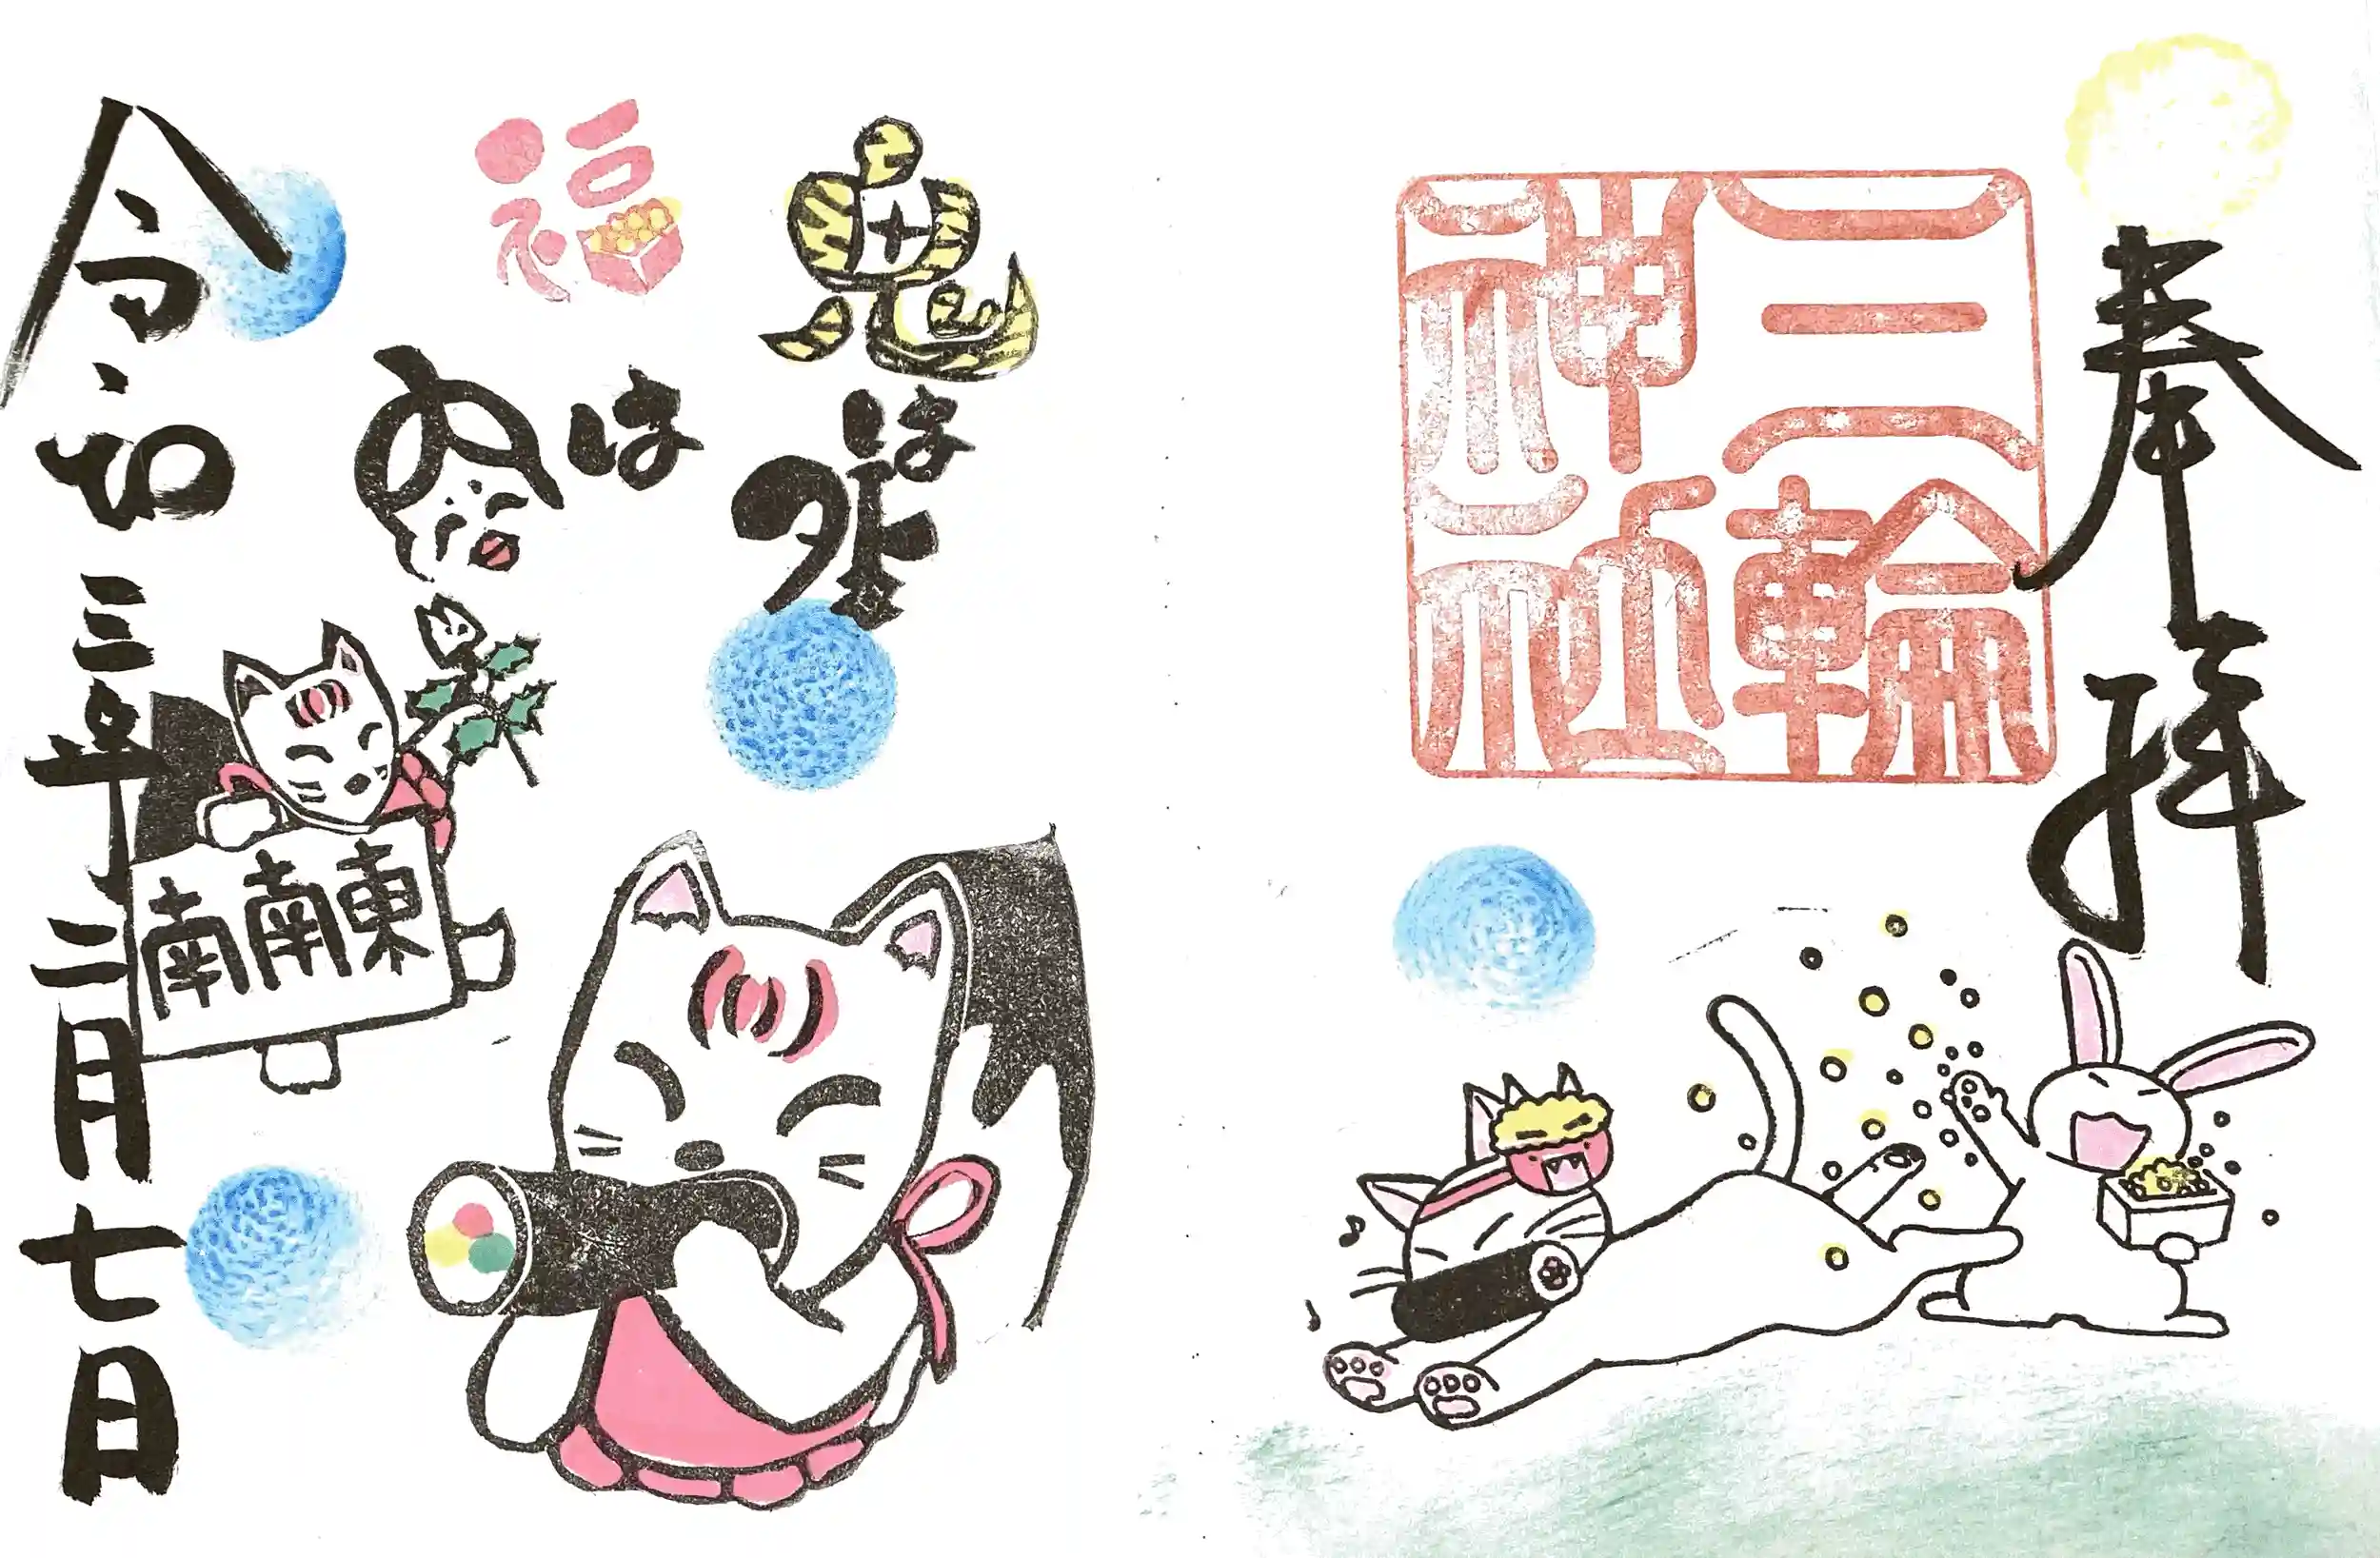 奉拝
三輪
神社
鬼は外
福は内
南南東
令和三年二月七日